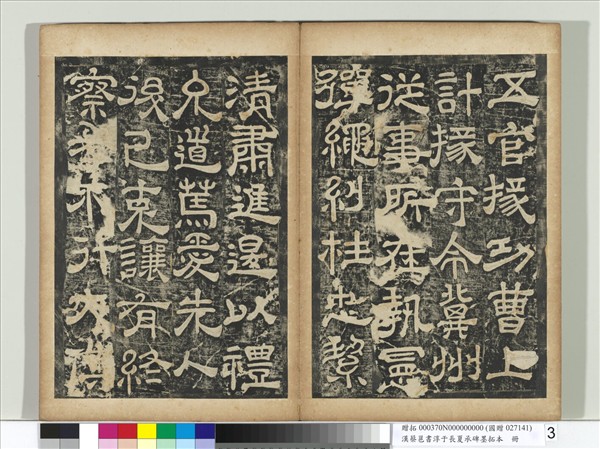 五官掾功曹上
計掾守令冀州
從事所在執憲
彈繩糾枉忠絜
清肅進退以禮
允道篤愛先人
後己克讓有終
察孝不行大傅
贈拓 000370N000000000 (國贈 027141)
漢蔡邕書淳于長夏承碑墨拓本 冊
3